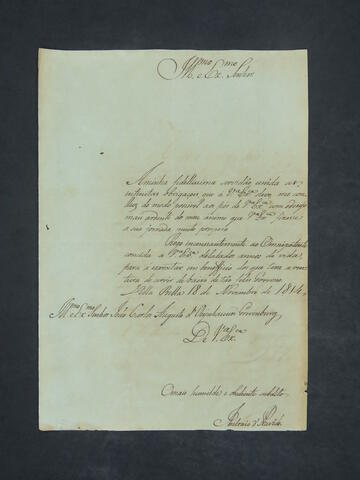 Illmo e Exmo Senhor
A minha fidelissima servidão unida as
restrictas obrigaçoens, que a V.ª Ex.ª devo me con
duz do modo possivel aos pés de V.ª Ex.ª com o dezejo
mais ardente do meu animo que V.ª Ex.ª
a sua jornada muito
Rogo incessantemente ao Omnipotente
conceda a V.ª Ex.ª dilatados annos de vida,
para a exercitar em beneficio dos que tem a ven
tura de servir de baixo de tão feliz Governo
Villa Bella 18 de Novembro de 1814
Illmo e Exmo Senhor João Carlos Augusto d'Oeynhausen Grevenburg
De V.ª Ex.ª
O mais humilde e obediente subdito
Antonio